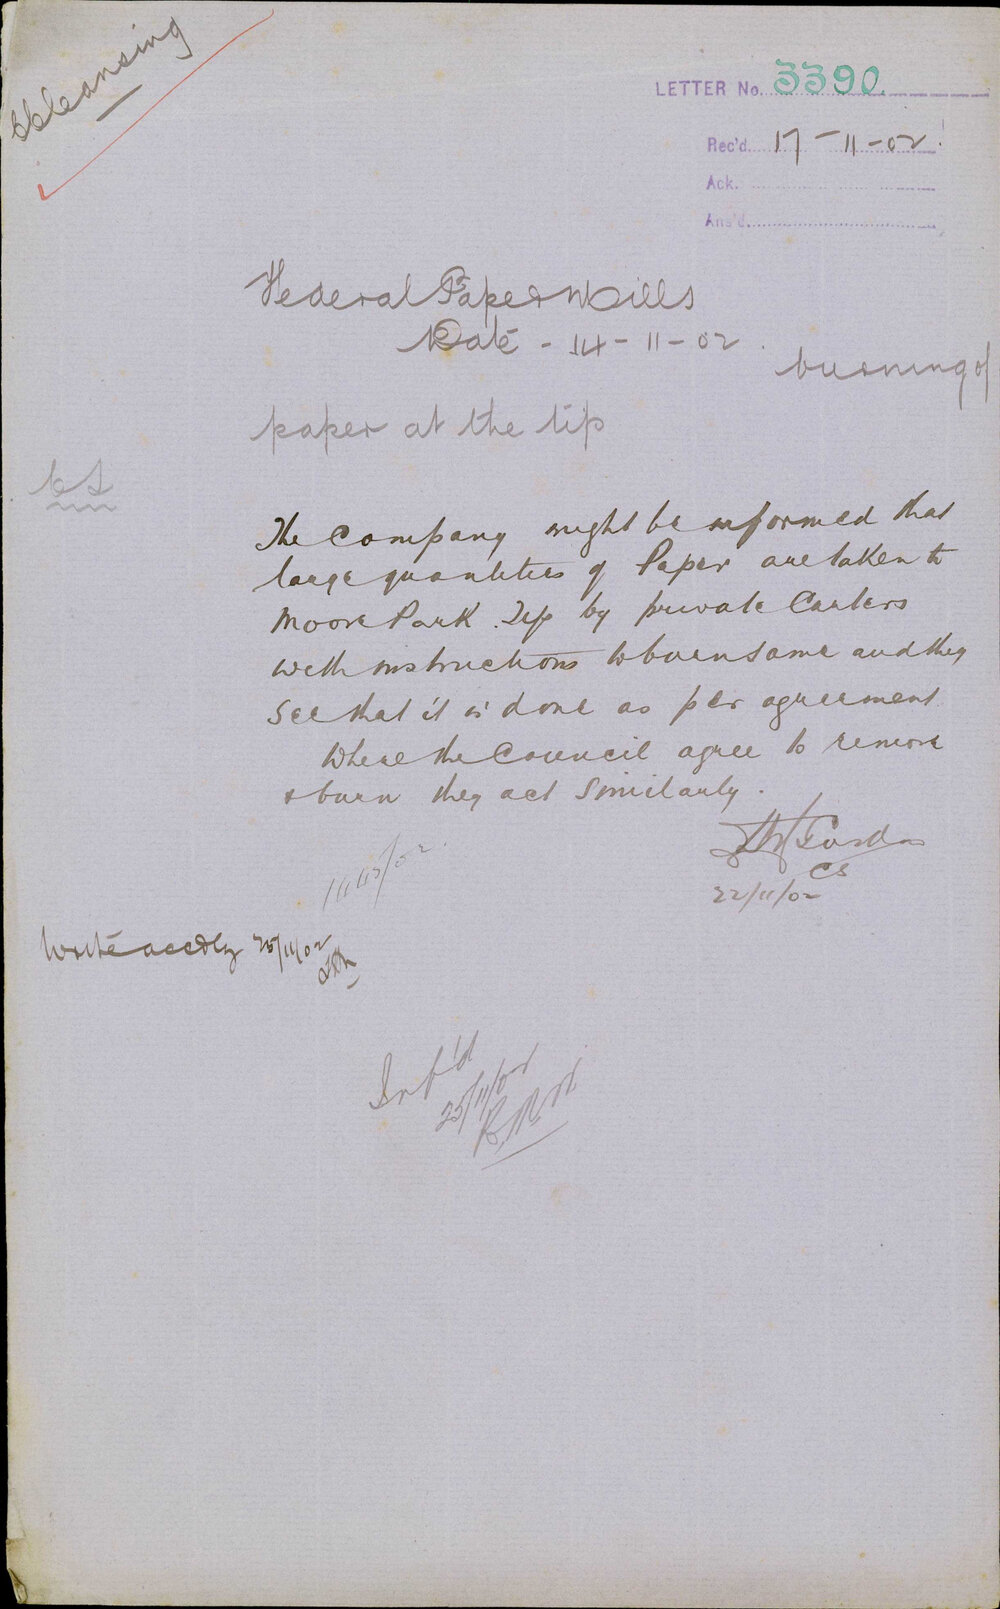 Cleansing
LETTER No. 3390
Rec'd. 17-11-02.
Ack.
Ans'd.
Federal Paper Mills
Date - 14-11-02.
burning of
paper at the tip
CS
The Company might be informed that
large quantities of Paper are taken to
Moore Park Tip by private Carters
with instructions to burn same and they
see that it is done as per agreement
Where the Council agree to remove
& burn they act Similarly.
CS
22/11/02
Write accdly 25/11/02
Inf'd
25/11/02